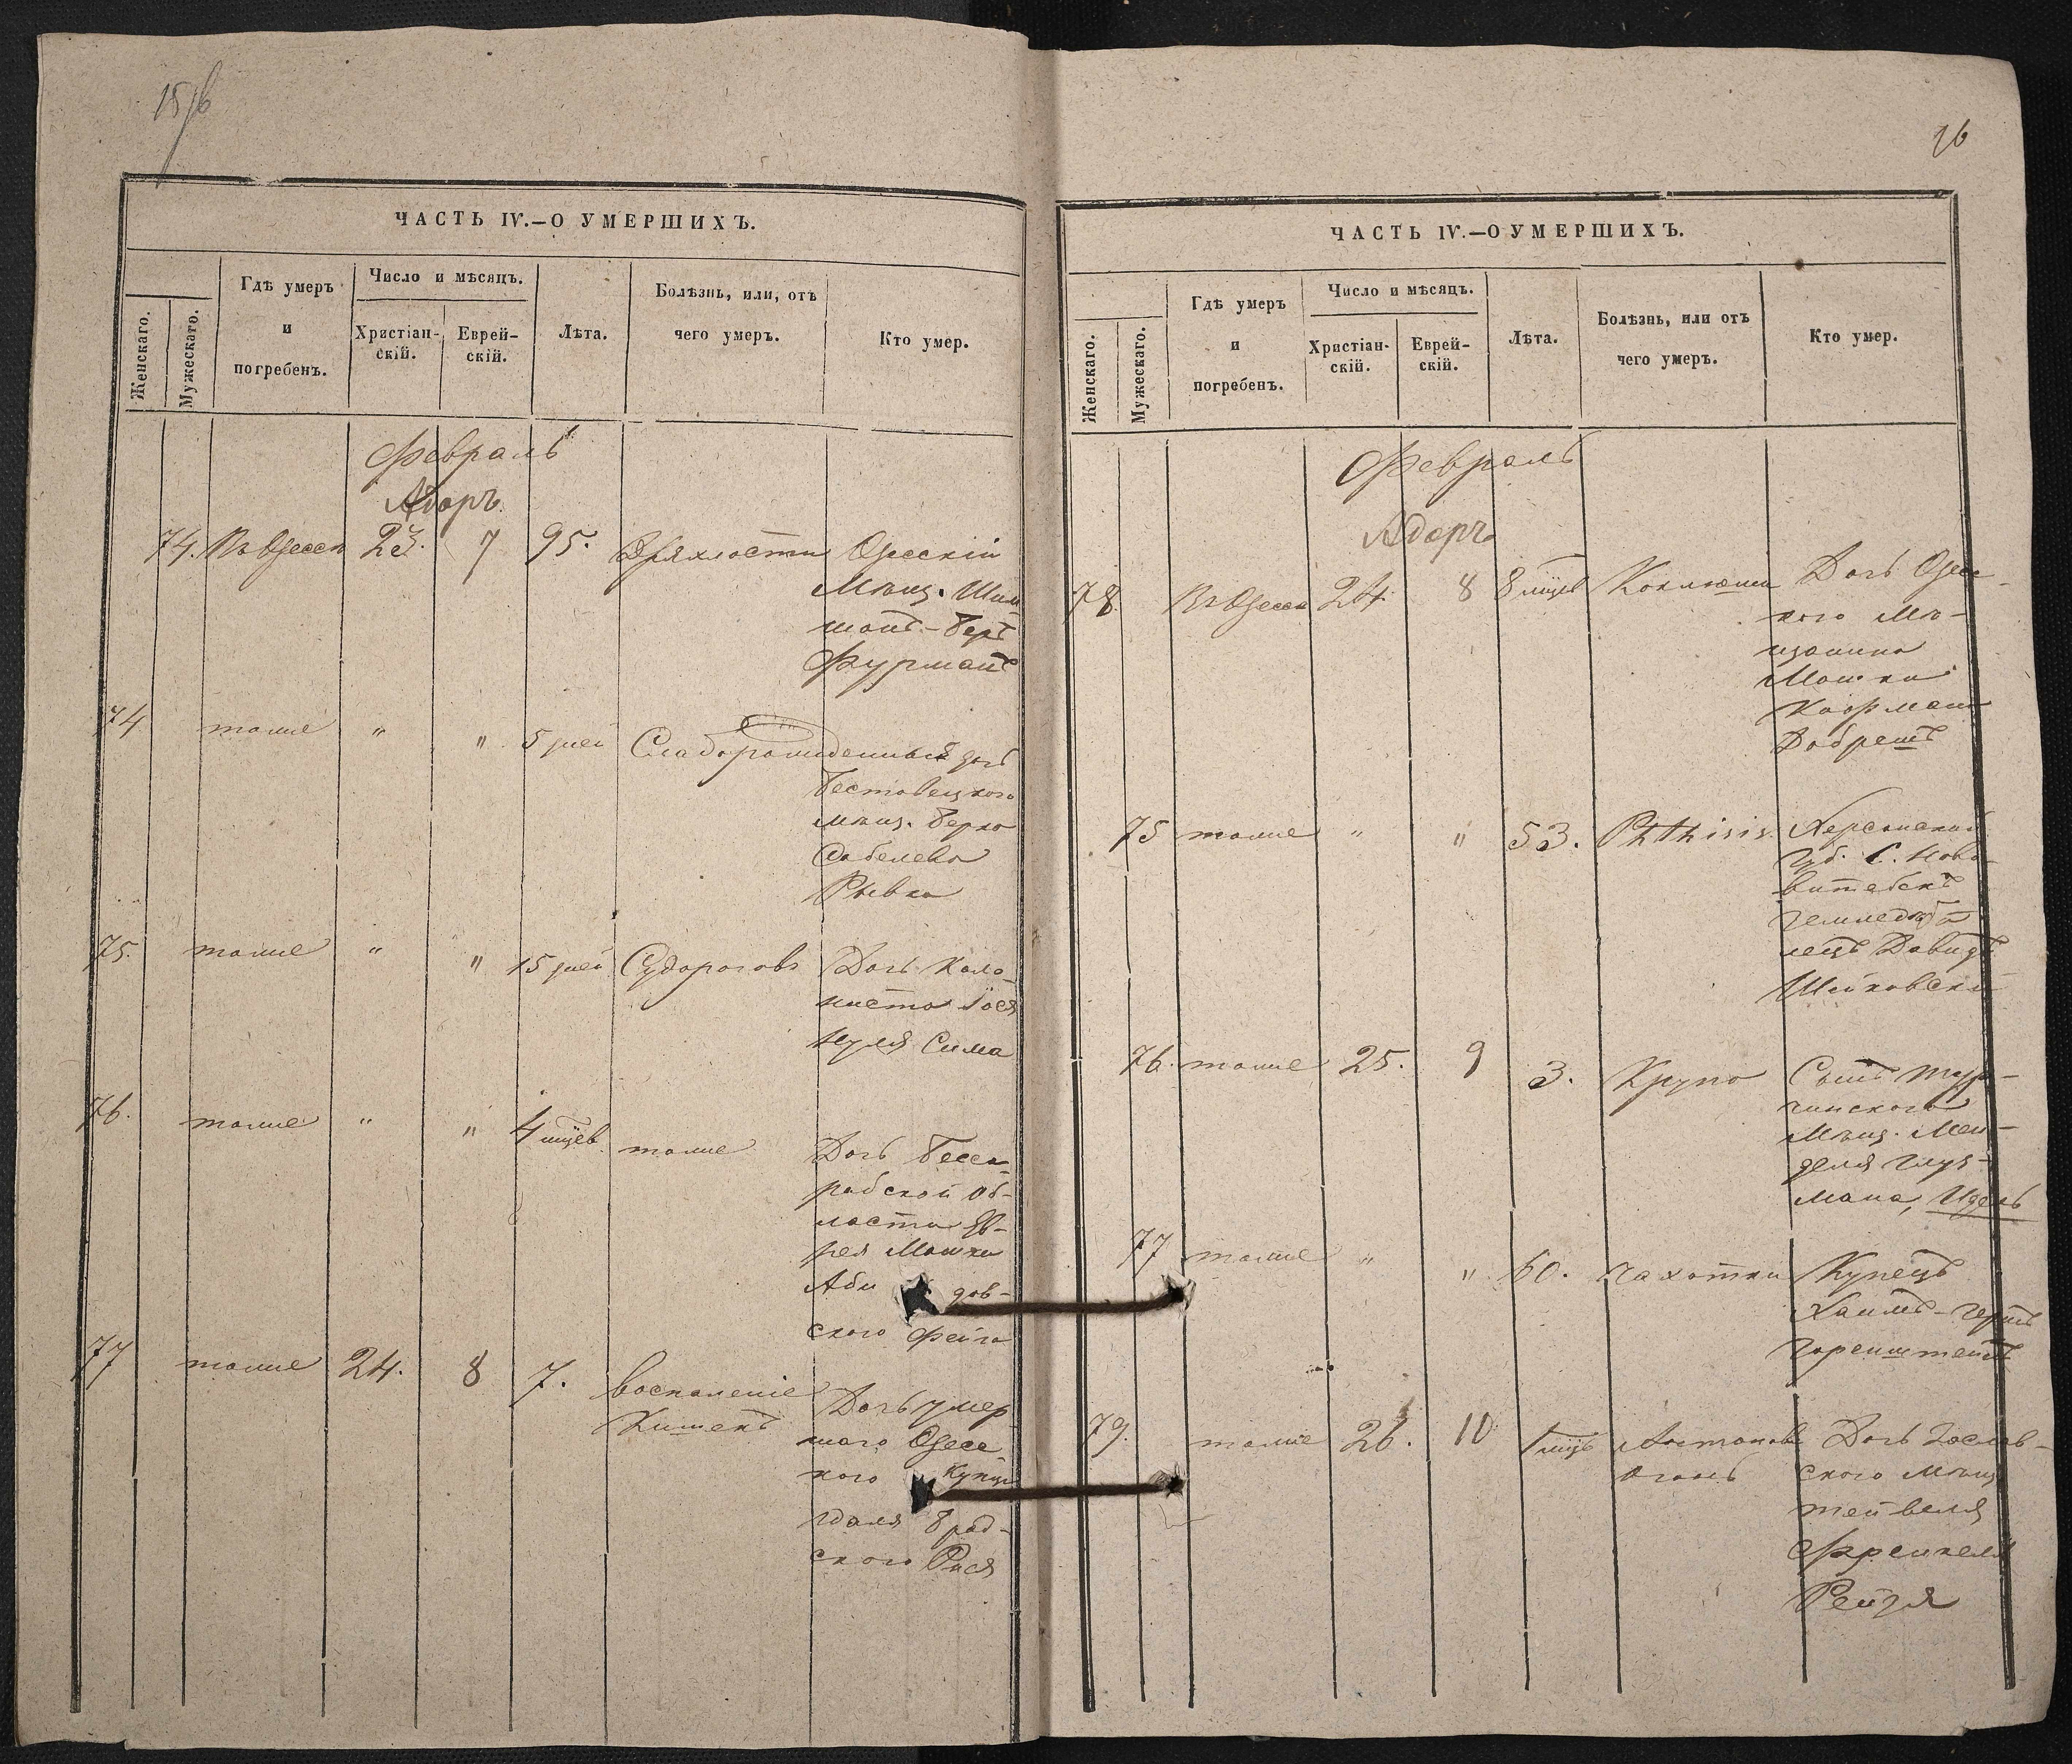 15/b
ЧАСТЬ IV.—О УМЕРШИХЪ.
Женскаго.
Мужескаго.
Гдѣ умеръ
и
погребенъ.
Число и мѣсяцъ.
Христіан-
скій.
Еврей-
скій.
Лѣта.
Болѣзнь, или, отъ
чего умеръ.
Кто умер.
Февраль
Адаръ
74. Въ Одессѣ 23. 7 95. Дряхлости Одесскій
Мѣщ. Шим
монъ-Беръ
Фурманъ
74 тоже " " 5 дней Слаборожденный дочь
мѣщ. Берко
Рывка
75. тоже " " 15 дней Судорогов Дочь Коло-
ниста Іося
Нуля Сима
76. тоже " " 4 мцев тоже Дочь Бесса-
рабской Об-
ласти Ев-
рея Мошки
дов-
ского Фейга
77 тоже 24. 8 7. Воспаленіе Дочь умер
Кишекъ
шаго Одесс
кого Купца
Брад-
ского Рися
16
ЧАСТЬ IV.—О УМЕРШИХЪ.
Женскаго.
Мужескаго.
Гдѣ умеръ
и
погребенъ.
Число и мѣсяцъ.
Христіан-
скій.
Еврей-
скій.
Лѣта.
Болѣзнь, или отъ
чего умеръ.
Кто умер.
Февраль
Адаръ
78. Въ Одессѣ 24. 8 8 мцев Коклюша Дочь Одес-
кого Мѣ-
щанина
Мошки
Кофмана
Добрешъ
75 тоже " " 53. Phthisis. Херсонской
Губ. С. Ново-
витебскъ
земледѣ
лецъ Давидъ
Шейковскій
76. тоже 25. 9 3. Крупо Сынъ Тур-
чинского
Мѣщ. Мен-
деля Глуз-
мана, Идель
77 тоже " " 60. Чахотки Купецъ
Хаимъ-Гершъ
Горенштейнъ
79. тоже 26. 10 1 мцъ Антоновъ Дочь Заслав-
огонь ского Мѣщ
Френкеля
Рейзя